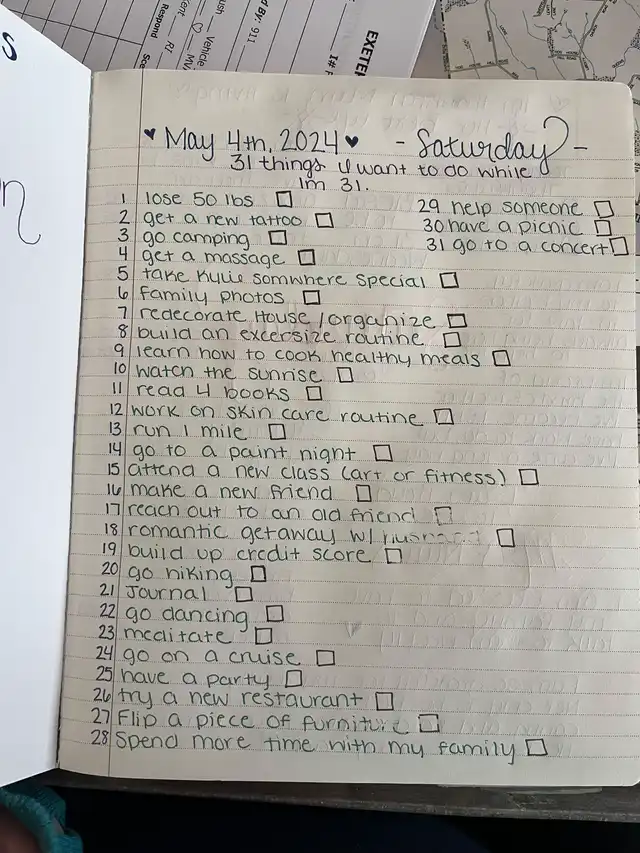 d By: 911
EXETER
I#
ush
Vehicle
MV
Respond
♥ May 4th, 2024 ♥ - Saturday -
31 things I want to do while
im 31.
1 lose 50 lbs ☐
2 get a new tattoo ☐
3 go camping ☐
4 get a massage ☐
5 take Kylie somwhere special ☐
6 family photos ☐
7 redecorate House/organize ☐
8 build an excersize routine ☐
9 learn how to cook healthy meals ☐
10 watch the sunrise ☐
11 read 4 books ☐
12 work on skin care routine ☐
13 run 1 mile ☐
14 go to a paint night ☐
15 attend a new class (art or fitness) ☐
16 make a new friend ☐
17 reach out to an old friend ☐
18 romantic getaway w/ husband ☐
19 build up credit score ☐
20 go hiking ☐
21 Journal ☐
22 go dancing ☐
23 meditate ☐
24 go on a cruise ☐
25 have a party ☐
26 try a new restaurant ☐
27 Flip a piece of furniture ☐
28 Spend more time with my family ☐
29 help someone ☐
30 have a picnic ☐
31 go to a concert ☐